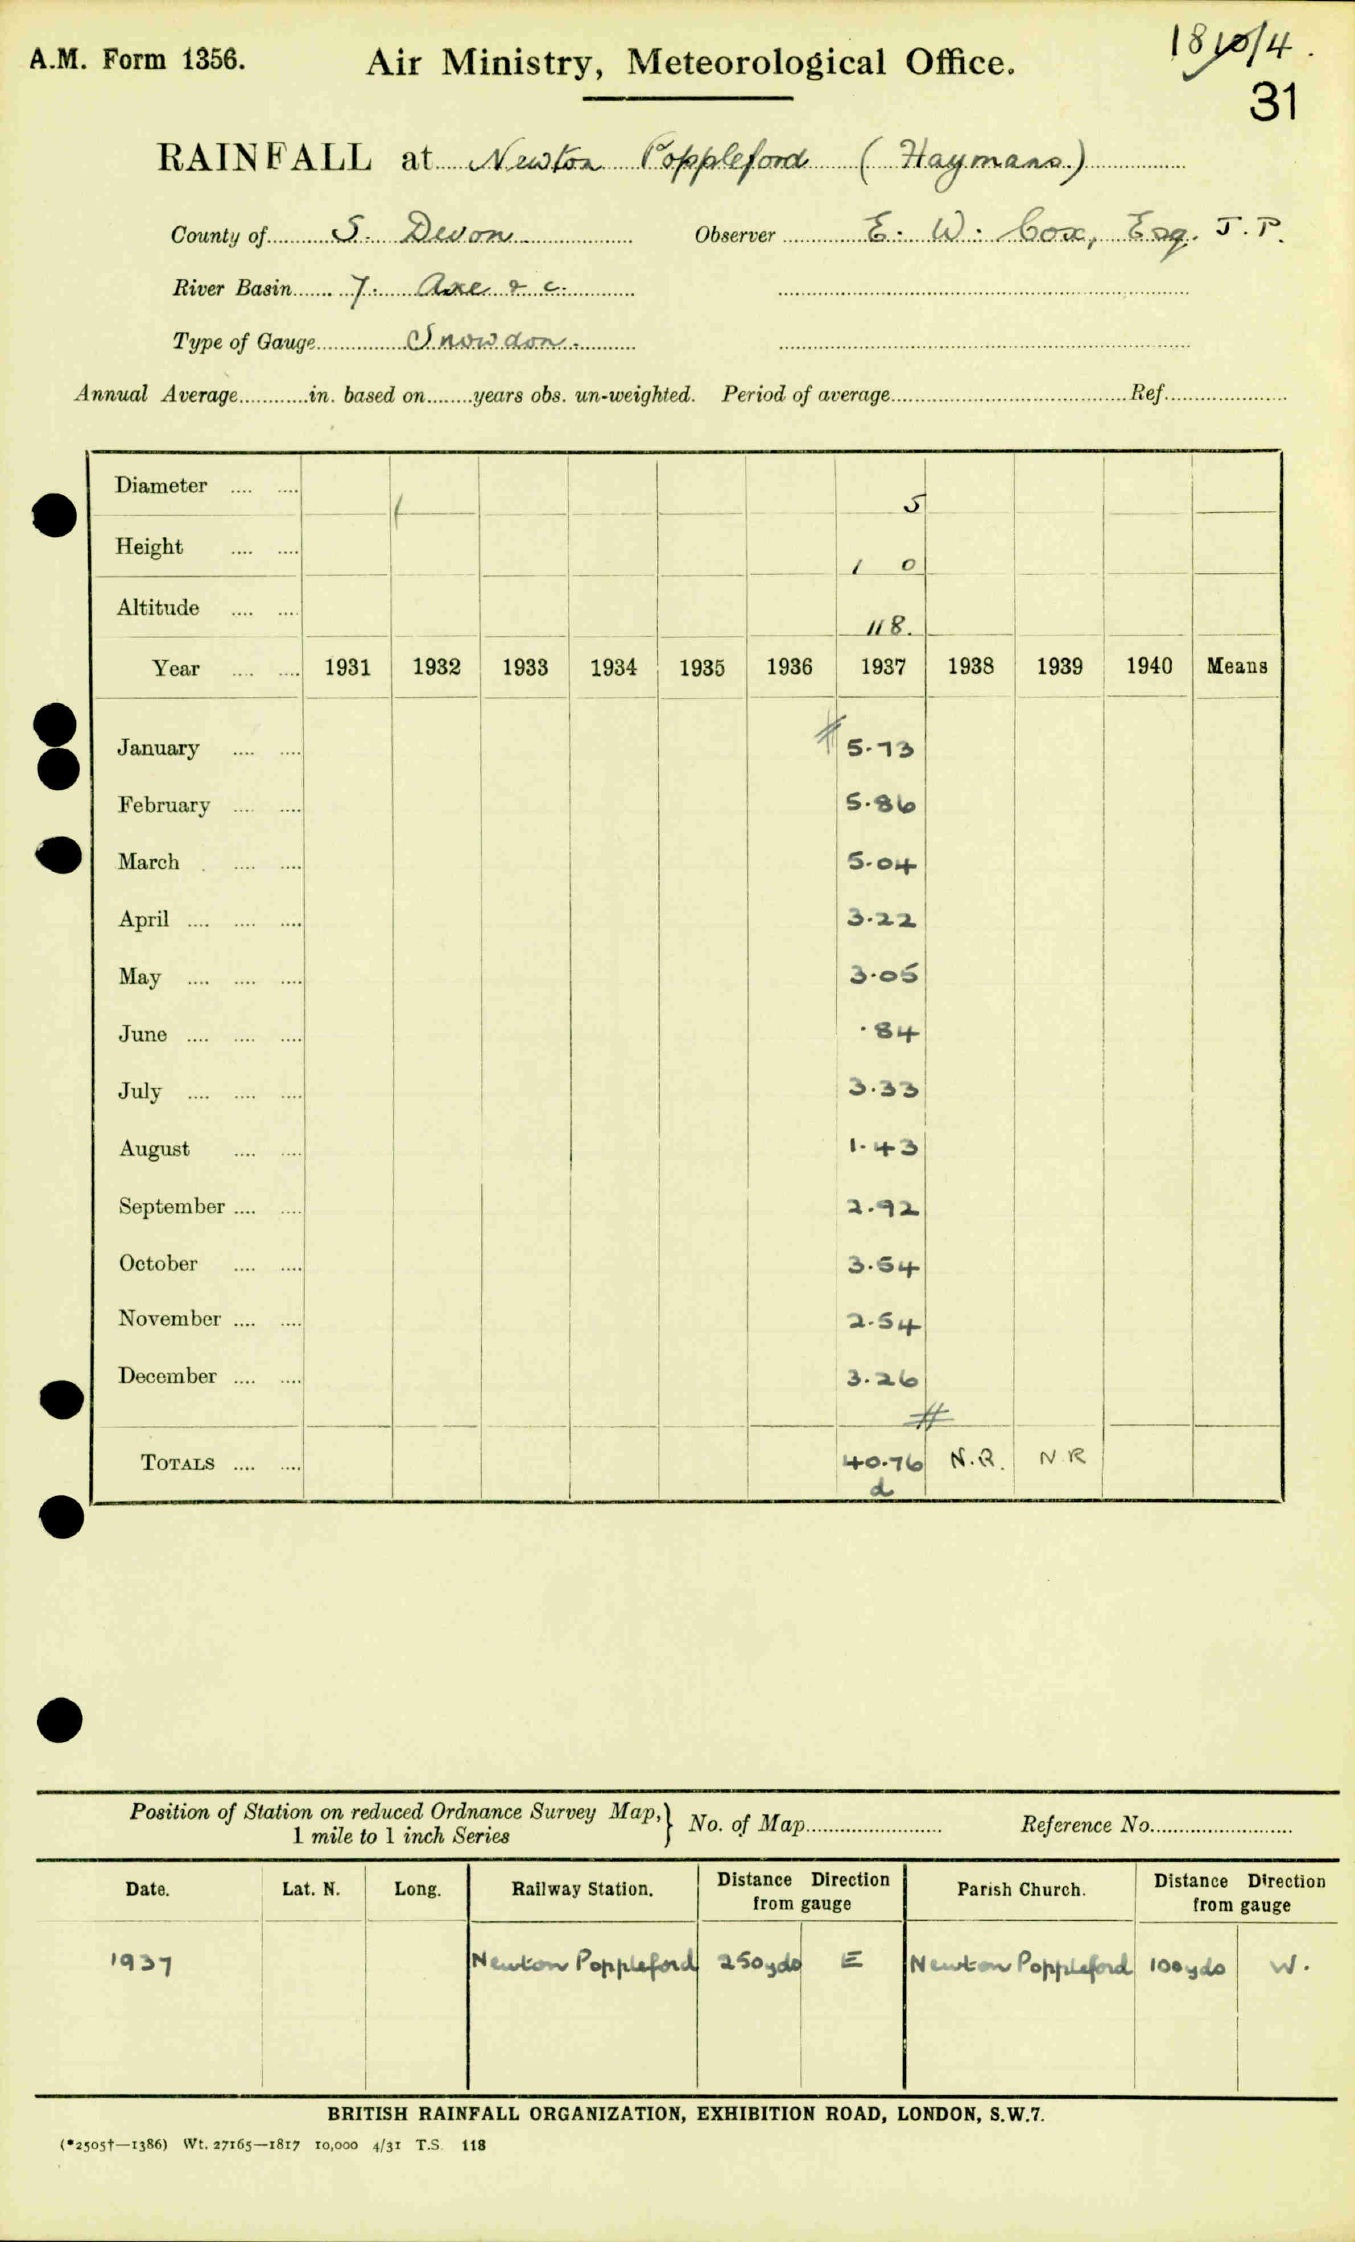 A.M. Form 1356. Air Ministry, Meteorological Office. 18 10/4.
31
RAINFALL at Newton Poppleford (Haymans.)
County of S. Devon. Observer E. W. Cox, Esq. J.P.
River Basin 7. Axe & c.
Type of Gauge Snowdon.
Annual Average............in. based on........years obs. un-weighted. Period of average........................................Ref......................
Diameter .... .... 5
Height .... .... 1 0
Altitude .... .... 118.
Year .... .... 1931 1932 1933 1934 1935 1936 1937 1938 1939 1940 Means
January .... .... 5.73
February .... .... 5.86
March .... .... 5.04
April .... .... .... 3.22
May .... .... .... 3.05
June .... .... .... .84
July .... .... .... 3.33
August .... .... 1.43
September .... .... 2.92
October .... .... 3.54
November .... .... 2.54
December .... .... 3.26
TOTALS .... .... 40.76 N.R. N.R
d
Position of Station on reduced Ordnance Survey Map,} No. of Map........................ Reference No.........................
1 mile to 1 inch Series
Date. Lat. N. Long. Railway Station. Distance Direction from gauge Parish Church. Distance Direction from gauge
1937 Newton Poppleford 250yds E Newton Poppleford 100yds W.
BRITISH RAINFALL ORGANIZATION, EXHIBITION ROAD, LONDON, S.W.7.
(*2505†—1386) Wt. 27165—1817 10,000 4/31 T.S. 118